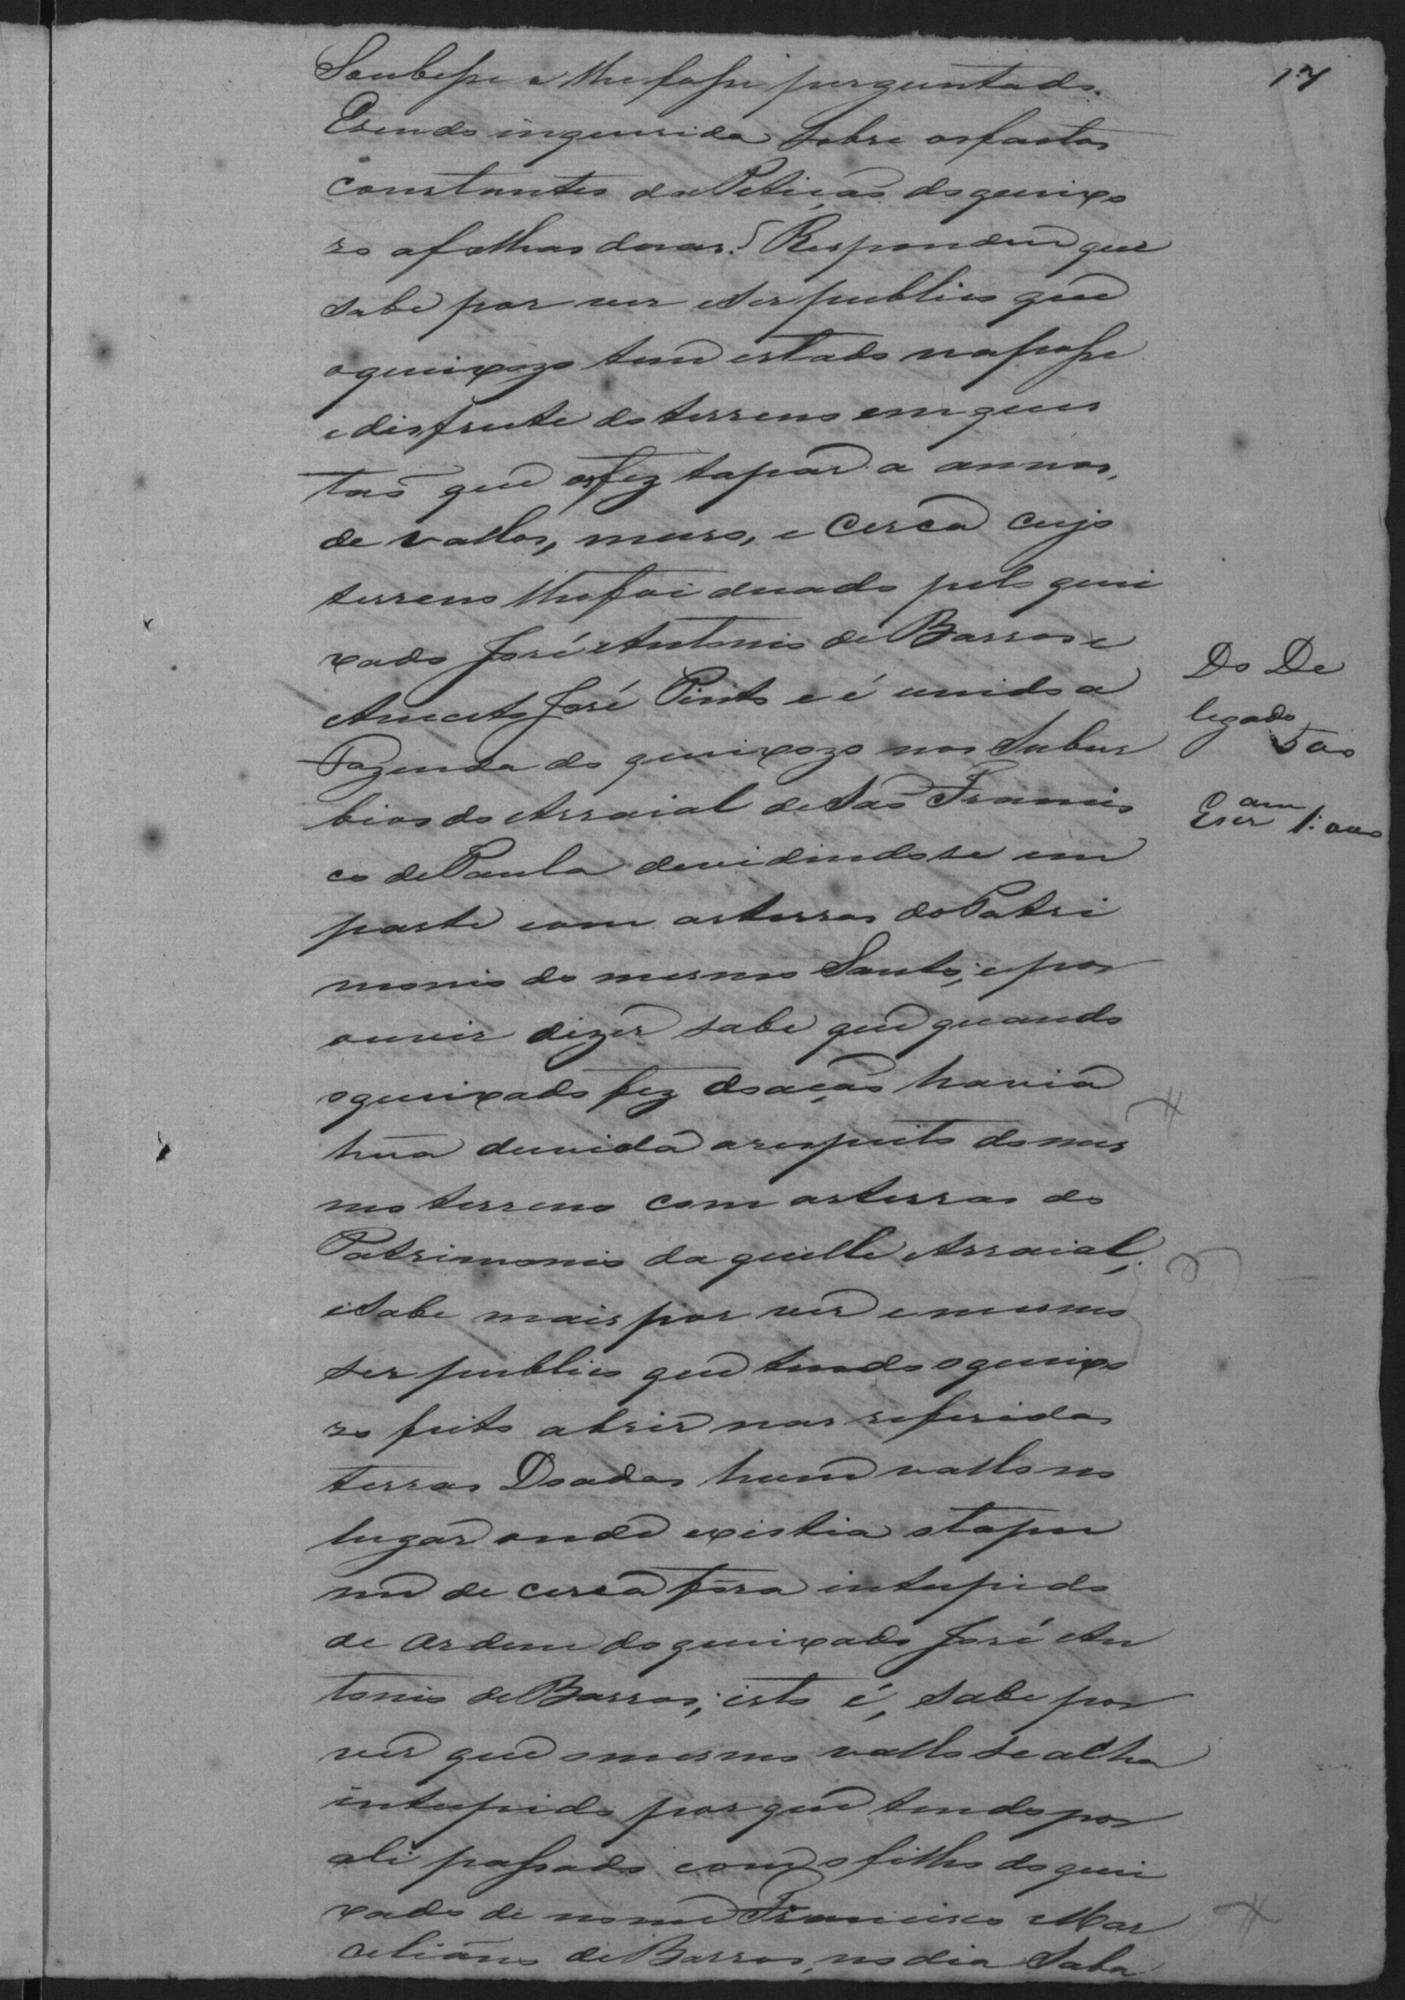 17
Soubesse e lhe fosse perguntado.
E sendo inquerida sobre os factos
constantes da Petição do queixo
zo a folhas duas. Respondeu que
sabe por ver e ser publico que
o queixozo tem estado na posse
e disfrute do terreno em ques
tão que o fez tapar a annos,
de vallos, muro, e cerca cujo
terreno lhe foi duado pelo quei
xado José Antonio de Barros e
Anacleto José Pinto e é unido a
Fazenda do queixozo nos Subur
bios do Arraial de São Francis
co de Paula devidindo se em
parte com as terras do Patri
monio do mesmo Santo; e por
ouvir dizer sabe que quando
o queixado fez doação havia
hua duvida a respeito do mes
mo terreno com as terras do
Patrimonio da quelle Arraial;
e Sabe mais por ver e mesmo
ser publico que tendo o queixo
zo feito abrir nas referidas
terras Doadas hum vallo no
lugar onde existia o tapu
me de cerca fora intupido
de ordem do queixado José An
tonio de Barros; isto é, sabe por
ver que o mesmo vallo se acha
intupido por que tendo por
ali passado com o filho do quei
xado de nome Francisco Mar
celiano de Barros, no dia Saba
Do De
legado
500
Escram 1:000